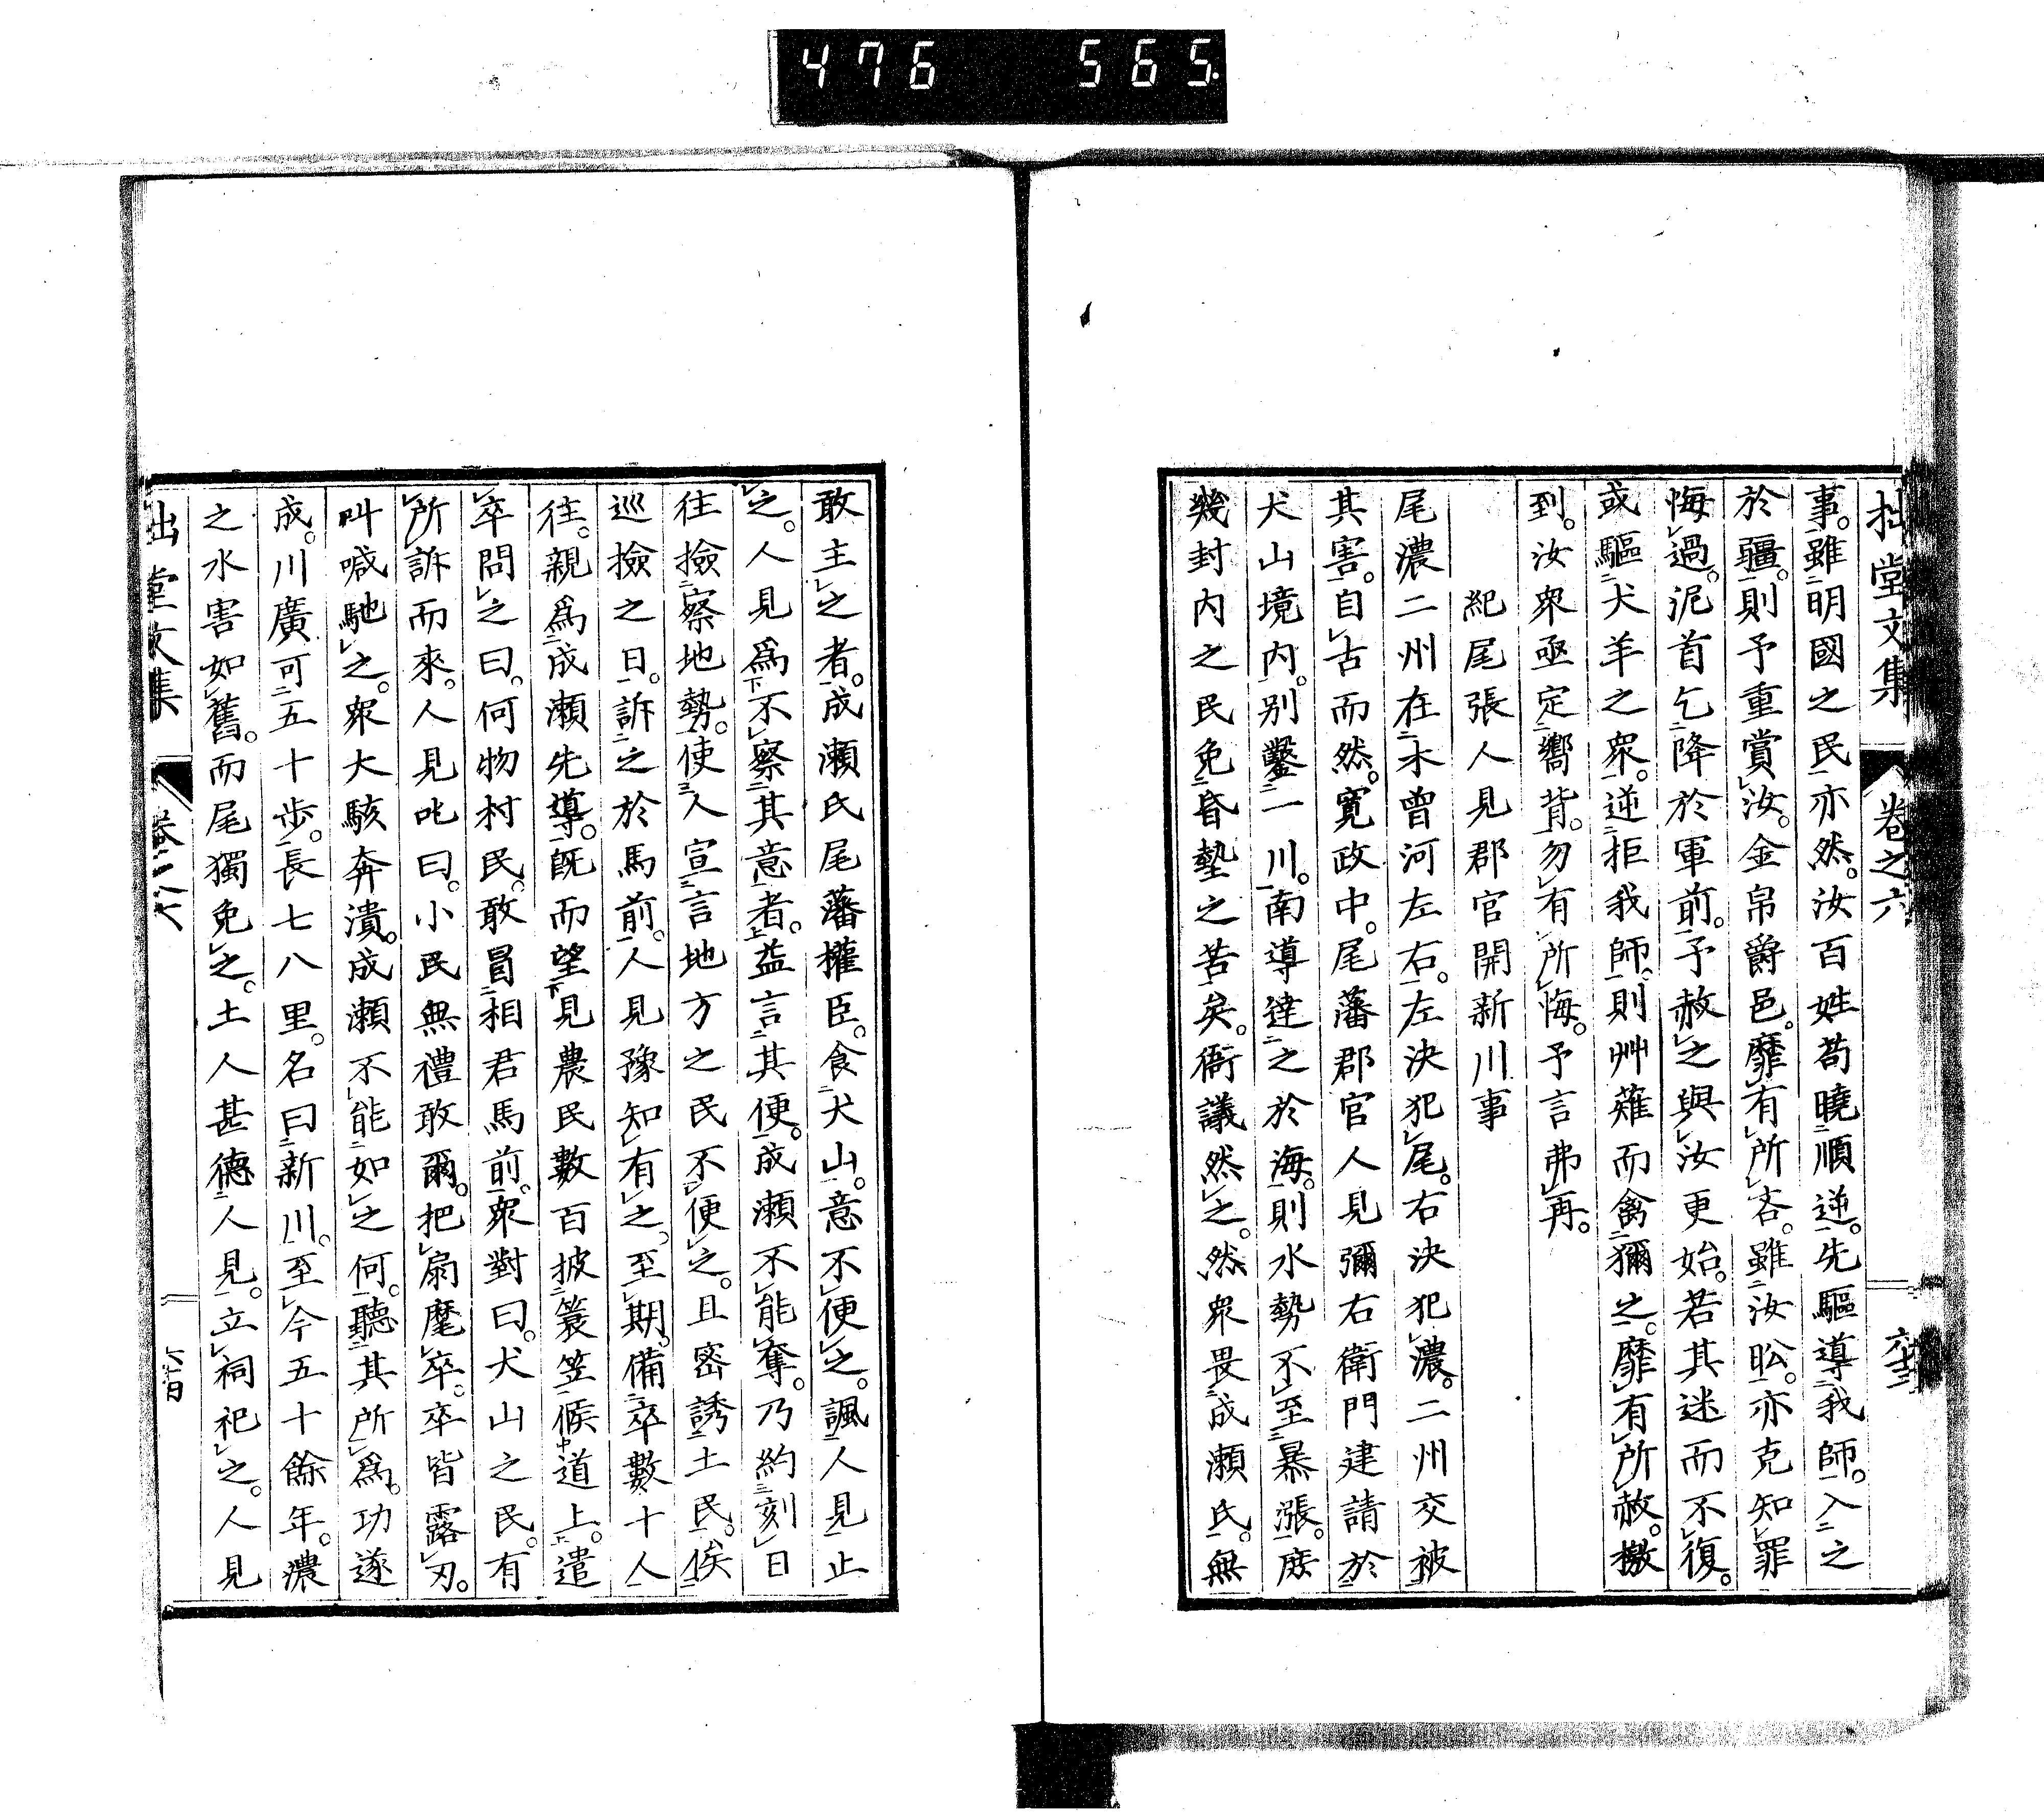 476 565
拙堂文集 卷之六
事。雖明國之民亦然。汝百姓苟曉順逆。先驅導我師。入之
於疆。則予重賞汝。金帛爵邑。靡有所吝。雖汝㕬。亦克知罪
悔過。泥首乞降於軍前。予赦之與汝更始。若其迷而不復。
或驅犬羊之衆。逆拒我師。則艸薙而禽獮之。靡有所赦。檄
到。汝衆亟定嚮背。勿有所悔。予言弗再。
紀尾張人見郡官開新川事
尾濃二州在木曾河左右。左決犯尾。右決犯濃。二州交被
其害。自古而然。寛政中。尾藩郡官人見彌右衛門建請於
犬山境内。別鑿一川。南導達之於海。則水勢不至暴漲。庶
幾封内之民免昏墊之苦矣。衙議然之。然衆畏成瀬氏。無
敢主之者。成瀬氏尾藩權臣。食犬山。意不便之。諷人見止
之。人見爲不察其意者。益言其便。成瀬不能奪。乃約刻日
往撿察地勢。使人宣言地方之民不便之。且密誘土民。俟
巡撿之日。訴之於馬前。人見豫知有之。至期。備卒數十人
往。親爲成瀬先導。既而望見農民數百披簑笠候道上。遣
卒問之曰。何物村民。敢冒相君馬前。衆對曰。犬山之民。有
所訴而來。人見叱曰。小民無禮敢爾。把扇麾卒。卒皆露刃。
叫喊馳之。衆大駭奔潰。成瀬不能如之何。聽其所爲。功遂
成。川廣可五十歩。長七八里。名曰新川。至今五十餘年。濃
之水害如舊。而尾獨免之。土人甚德人見。立祠祀之。人見
拙堂文集 卷之六